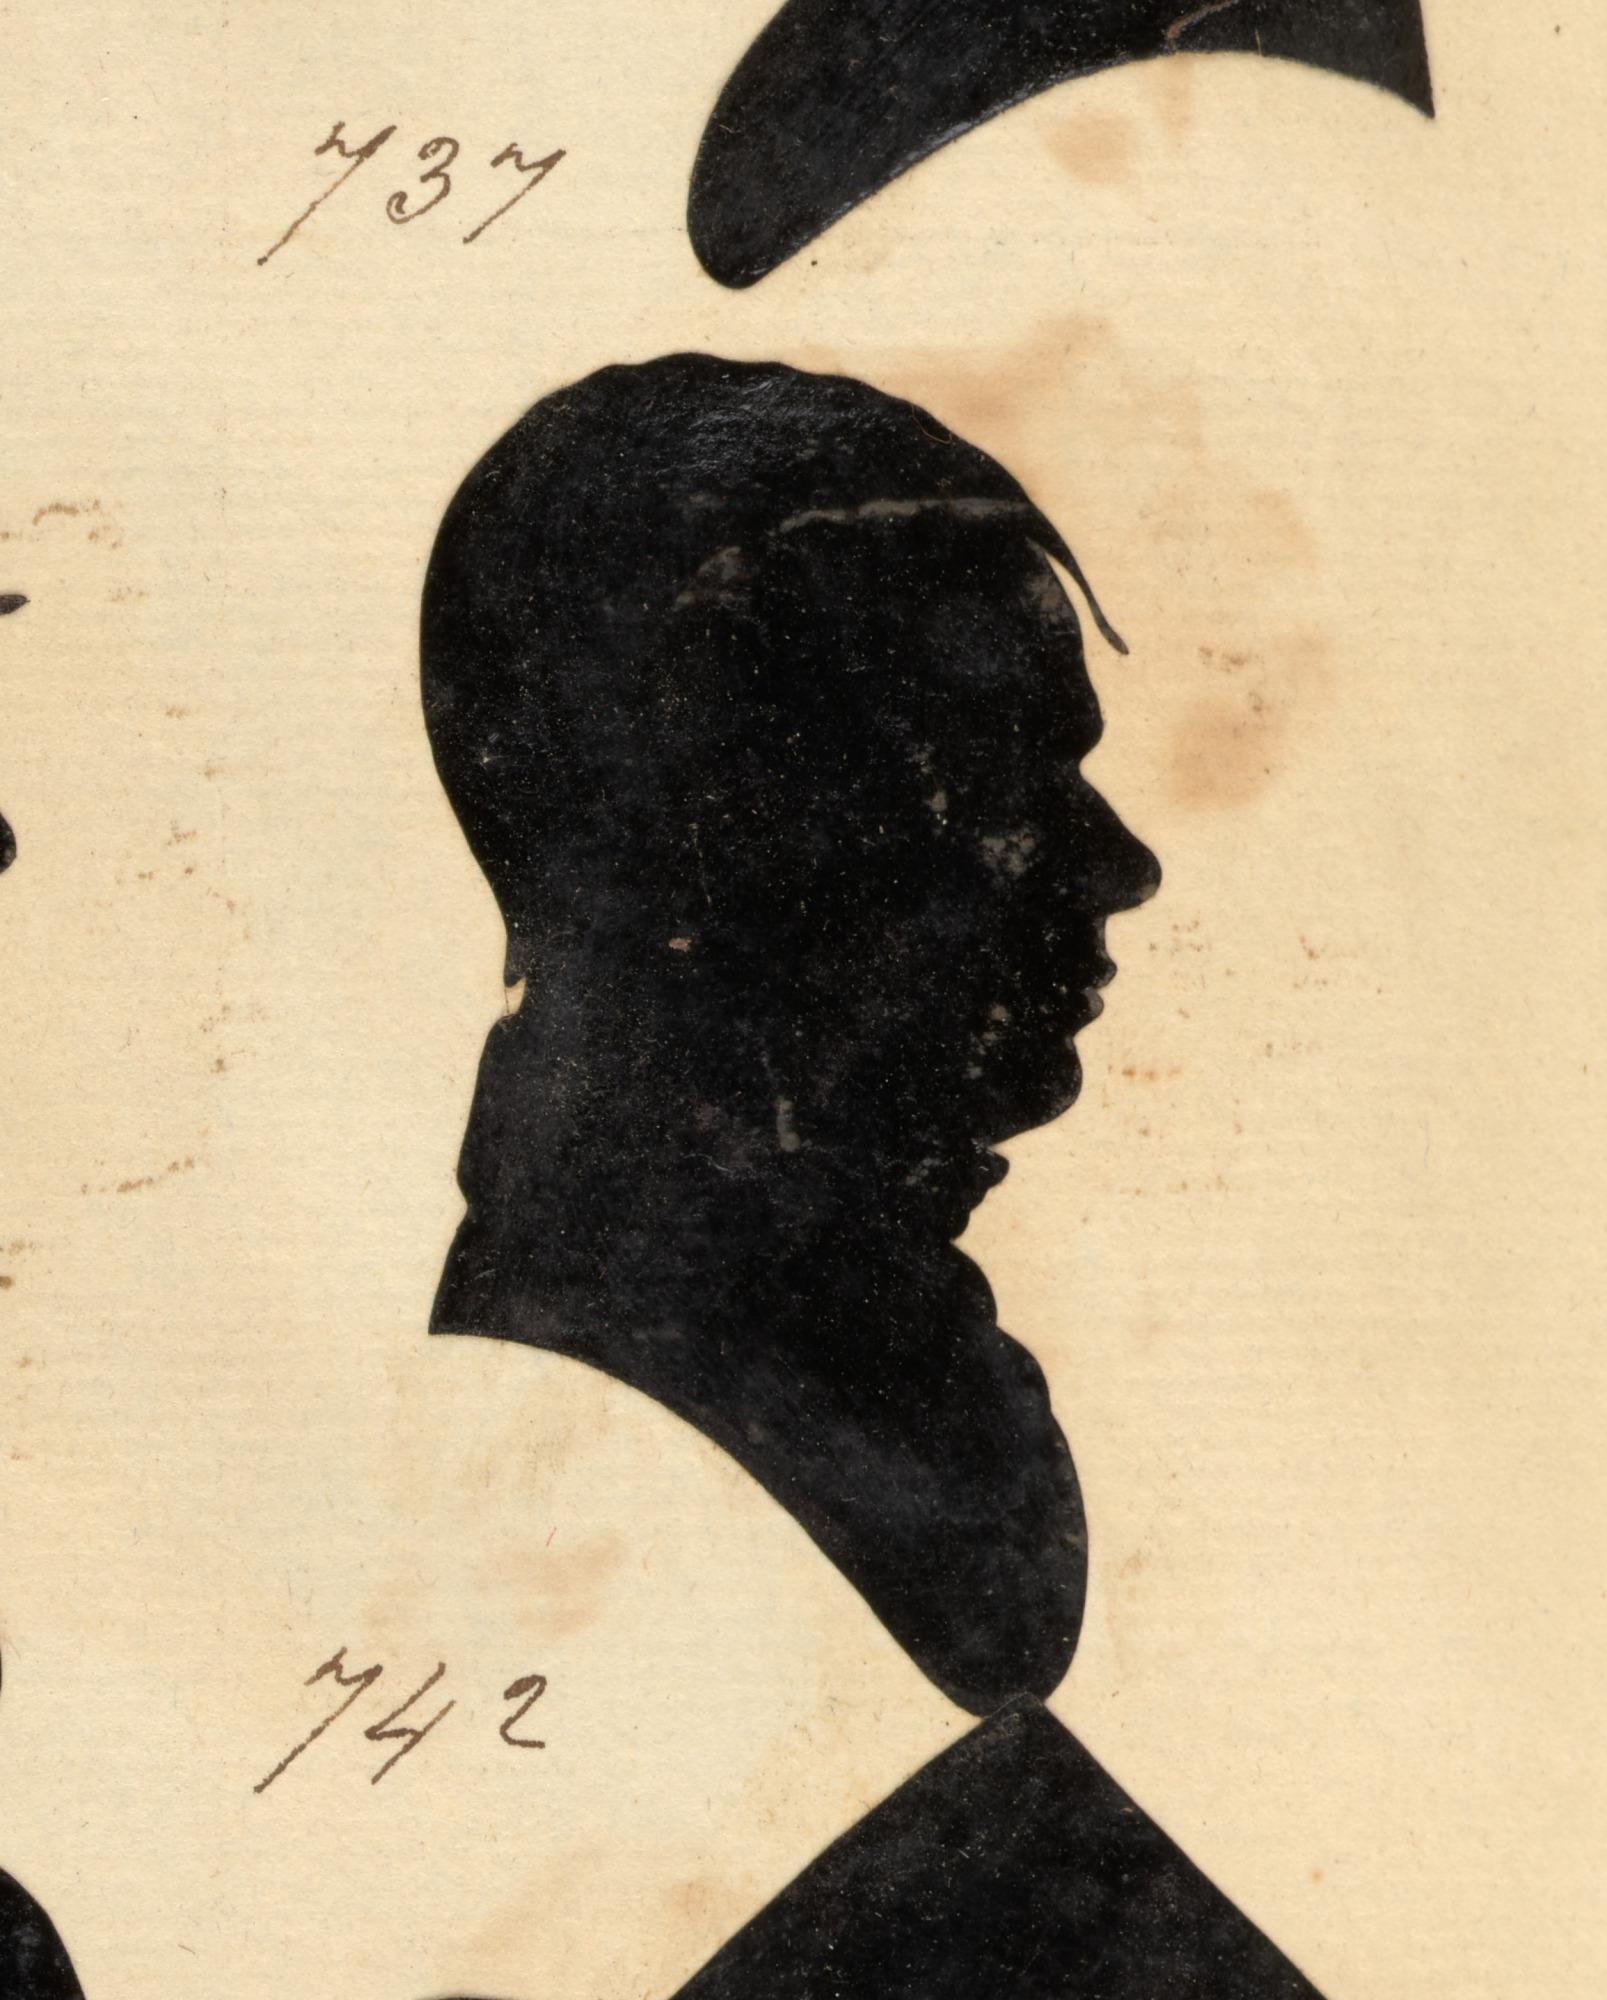 737
742